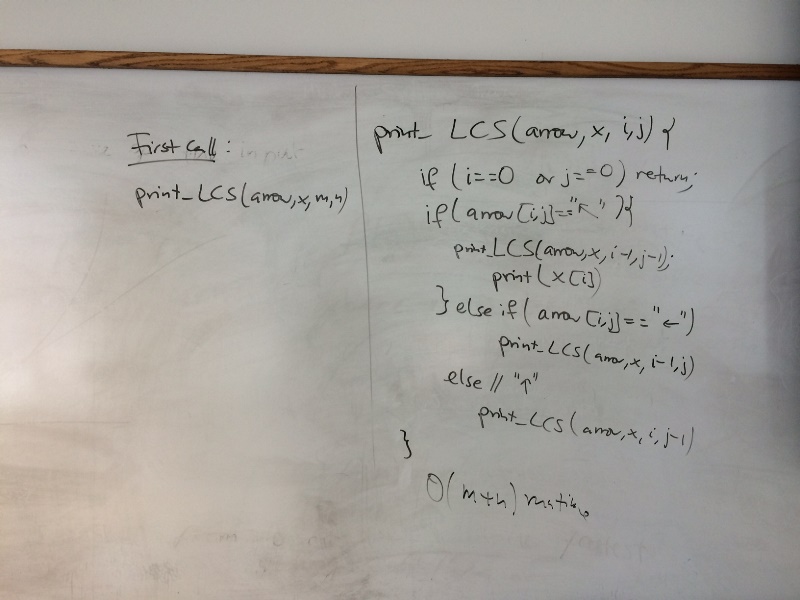 First Call:
print_LCS(arrow,x,m,n)
print_ LCS(arrow, x, i,j) {
if (i==0 or j==0) return;
if(arrow[i,j]=="↖"){
print_LCS(arrow,x,i-1,j-1);
print(x[i])
} else if (arrow [i,j]=="←")
print_LCS(arrow,x,i-1,j)
else // "↑"
print_LCS(arrow,x,i,j-1)
}
O(m+n)